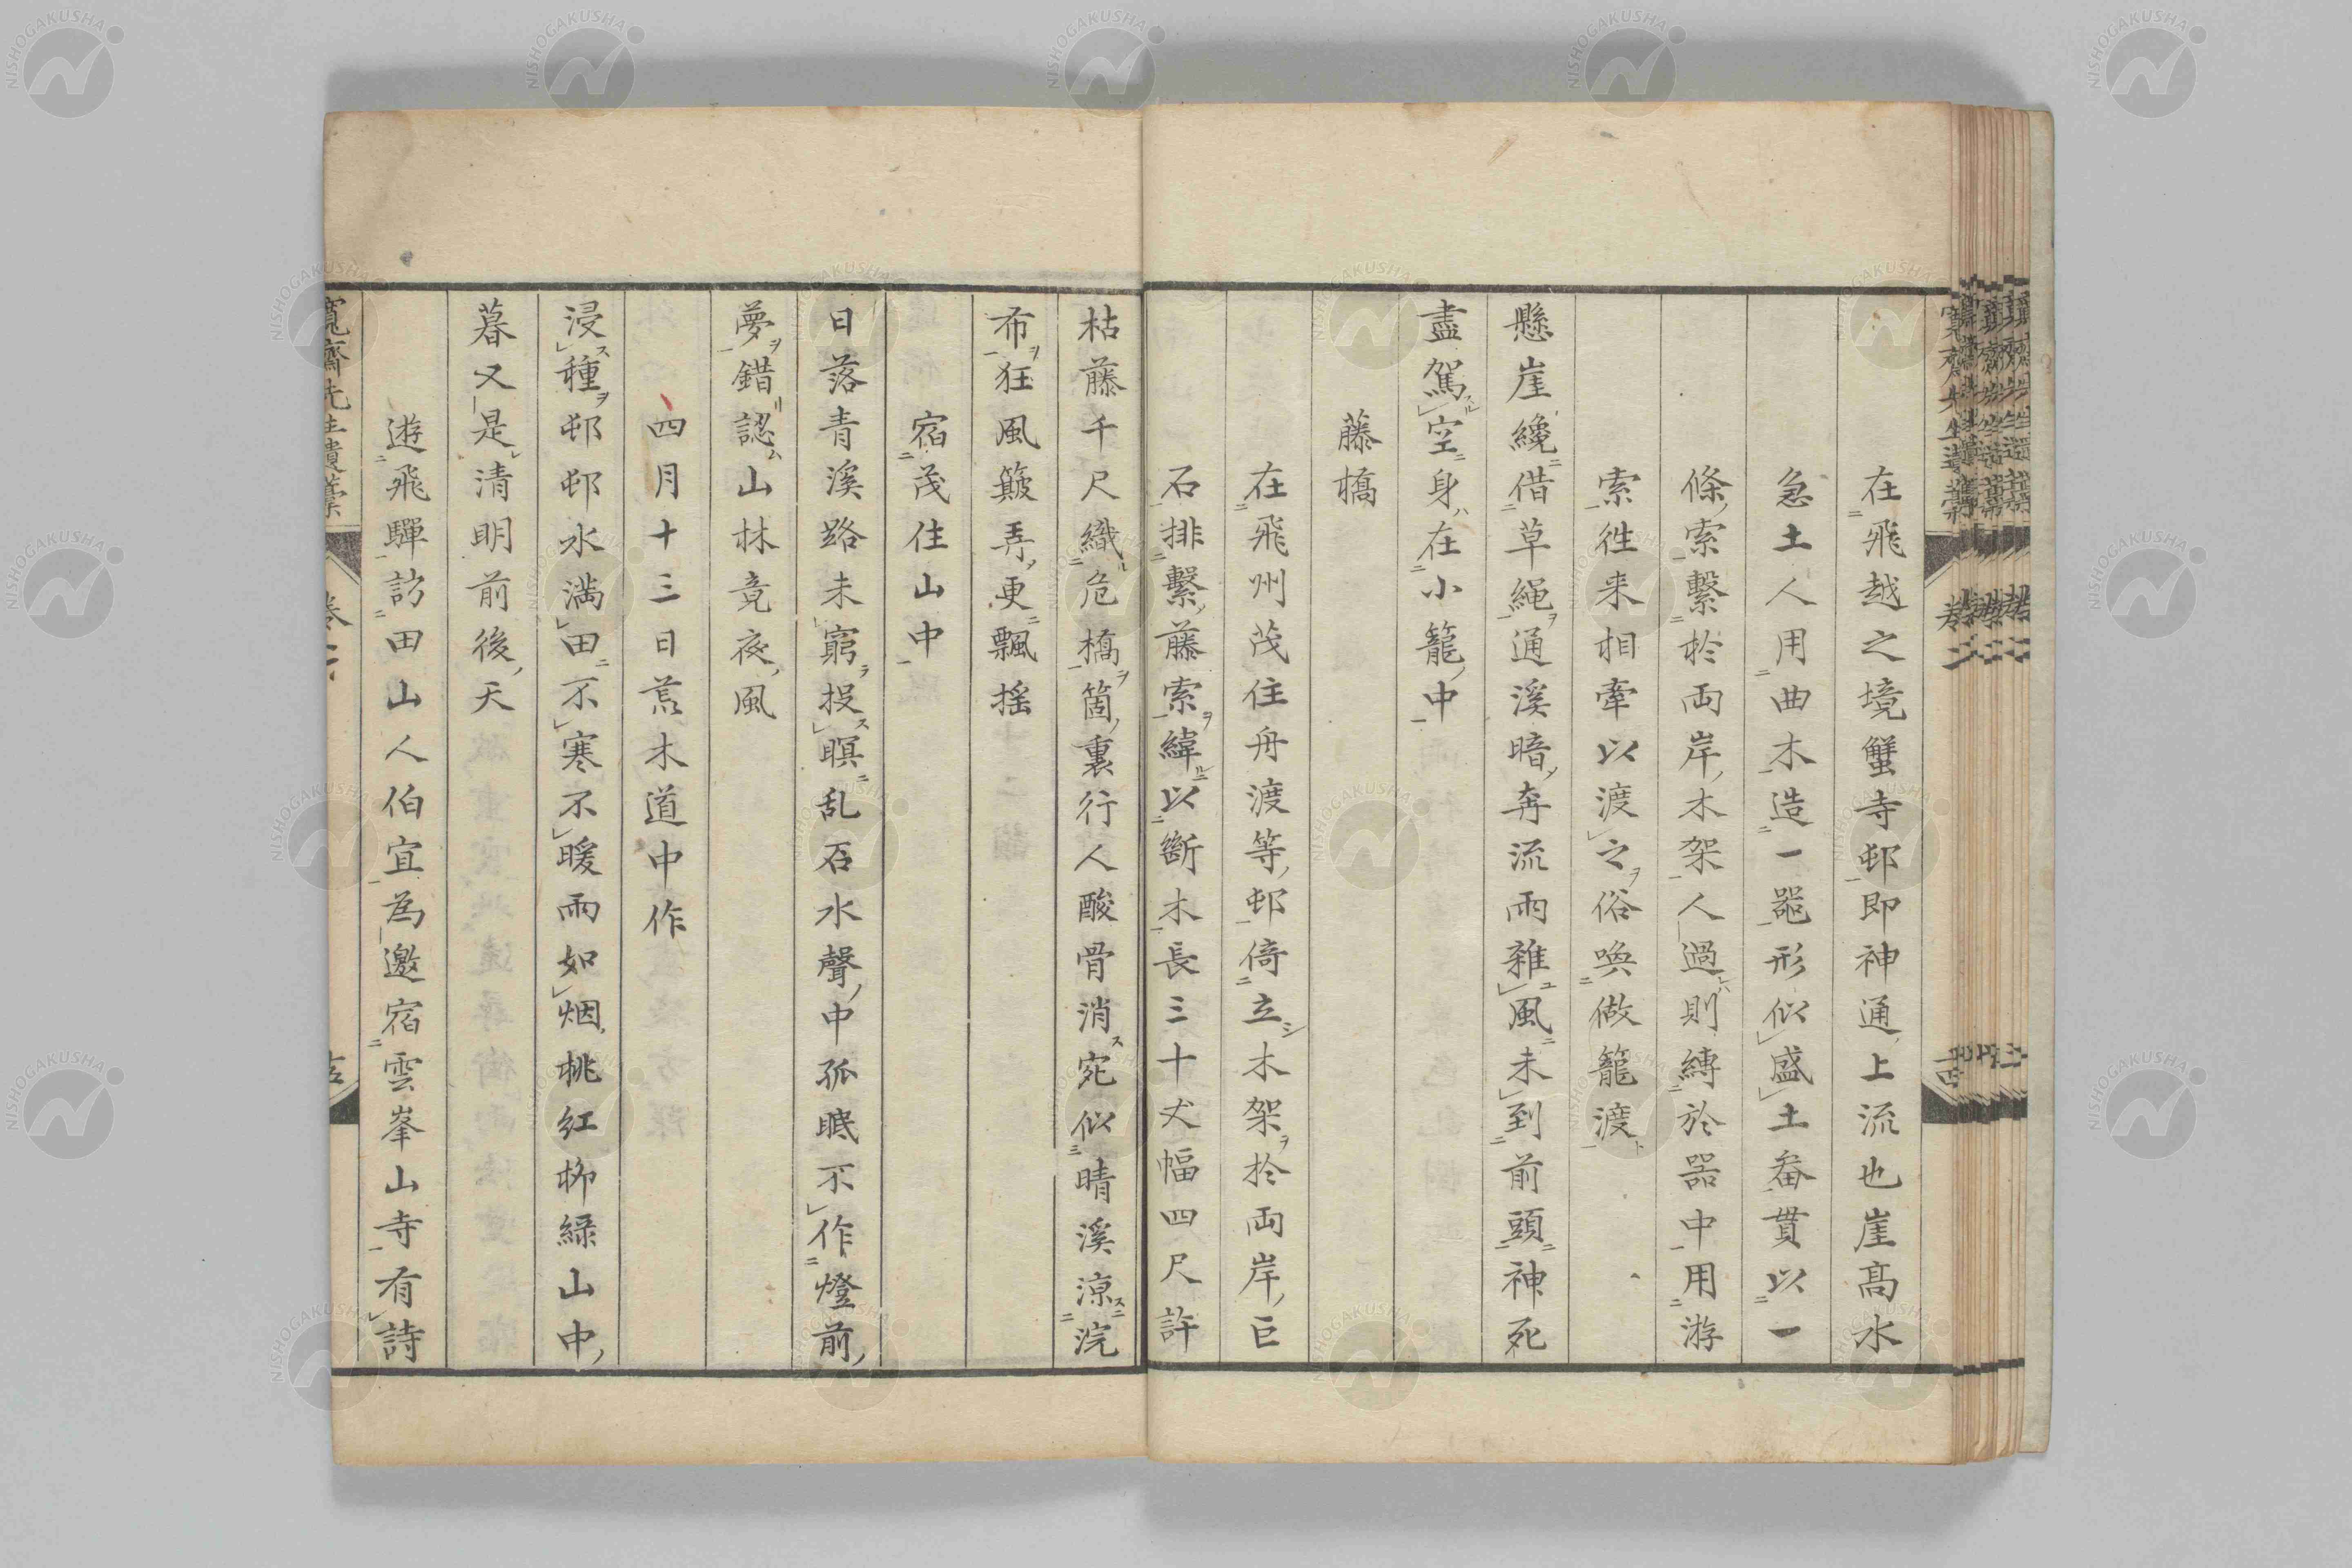 在飛越之境蟹寺邨即神通上流也崖高水
急土人用曲木造一器形似盛土畚貫以一
條索繫於両岸木架人過則縛於器中用游
索徃来相牽以渡之俗喚做籠渡
懸崖纔借草繩通溪暗奔流雨雜風未到前頭神死
盡駕空身在小籠中
藤橋
在飛州茂住舟渡等邨倚立木架於両岸巨
石排繫藤索緯以斷木長三十丈幅四尺許
枯藤千尺織危橋箇裏行人酸骨消宛似晴溪涼浣
布狂風簸弄更飄揺
宿茂住山中
日落青溪路未窮投暝乱石水聲中孤眠不作燈前
夢錯認山林竟夜風
四月十三日荒木道中作
浸種邨邨水満田不寒不暖雨如烟桃紅柳緑山中
暮又是清明前後天
遊飛驒訪田山人伯宜為邀宿雲峯山寺有詩
寛齋先生遺稾
巻二
NISHOGAKUSHA